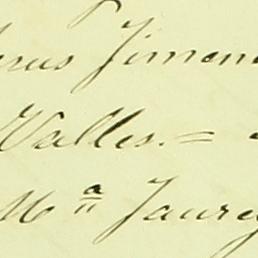 Jimen
Valles.=
Mª Jaureg